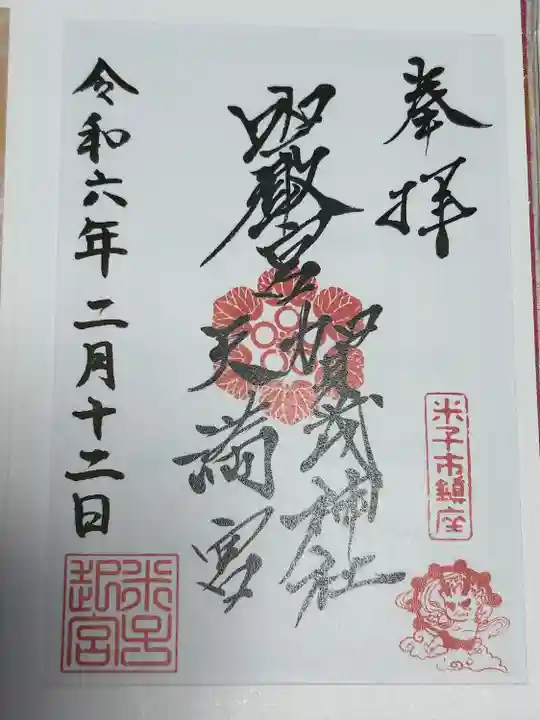 奉拝
賀茂神社
天満宮
令和六年二月十二日
米子市鎮座
米子
起宮